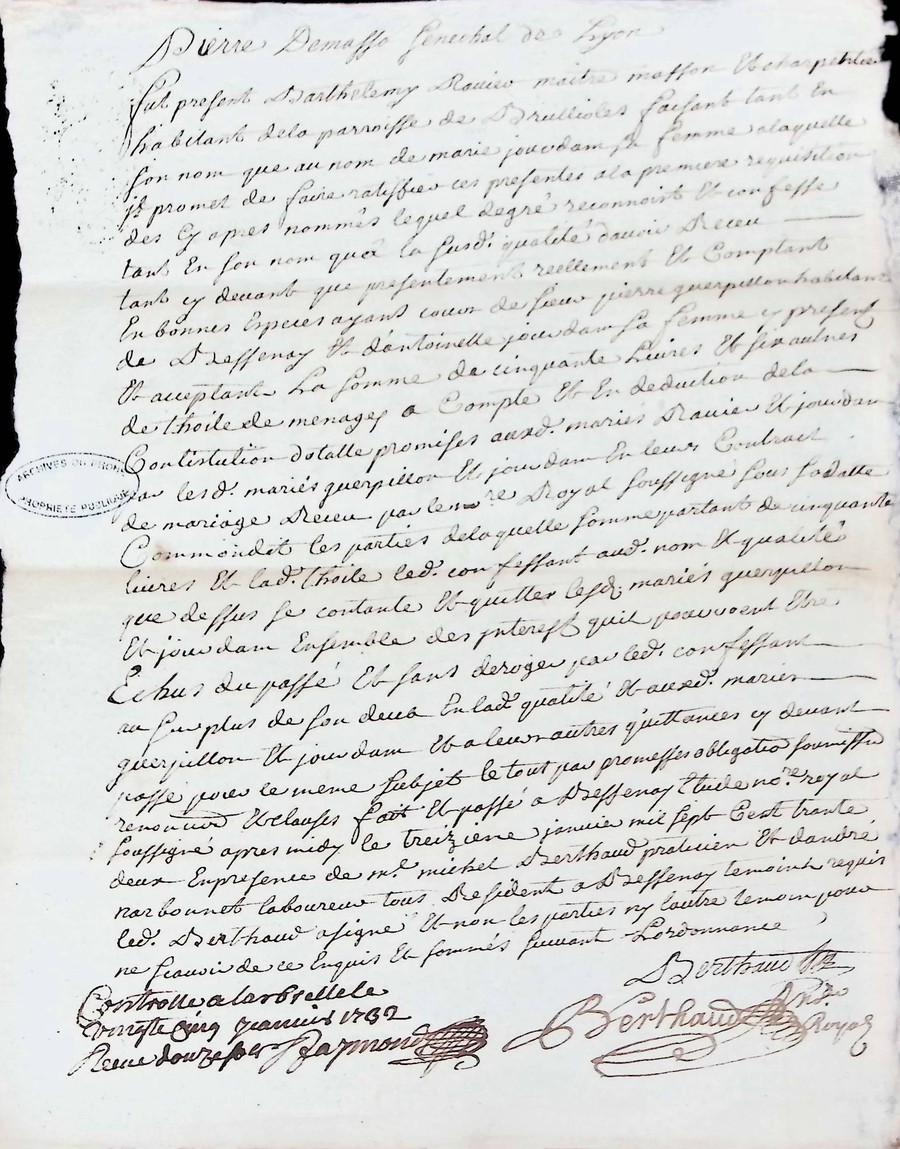 Pierre Demasso Senechal de Lyon
fut present Barthelemy Ravier maitre masson Et charpentier
habitant dela parroisse de Brullioles faisant tant En
son nom que au nom de marie jourdam sa femme alaquelle
jl promet de faire ratiffier ces presentes ala premiere requisition
des Cy apres nommés lequel degré reconnoist Et confesse
tant En son nom qu'a la susd. qualité davoir Receu
tant cy devant que presentement reellement Et Comptant
En bonnes Especes ayant cour de sieur pierre guerpillon habitant
de Bessenay Et d'antoinette jourdam sa femme cy present
Et acceptant La somme de cinquante Livres Et six aulnes
de thoile de menage a Compte Et En deduction dela
Contistution dotalle promises auxd. mariés Ravier Et jourdam
par lesd. mariés guerpillon Et jourdam En leurs Contract
de mariage Receu par le no.re Royal soussigné sous sa datte
Comme ondit les parties delaquelle somme partant de cinquante
livres Et lad. thoile led. confessant aud. nom Et qualité
que dessus se contante Et quitter lesd. mariés guerpillon
Et jourdam Ensemble des jnterest quil pouvoent Etre
Echus du passé Et sans deroger par led. confessant
au surplus de son deub En lad. qualité Et auxd. mariés
guerpillon Et jourdam Et a leur autres quittances cy devant
passé pour le meme subjet le tout par promesses obligatio soumissio
renonciao Et clauses fait Et passé a Bessenay Etude no.re royal
soussigné apres midy le treizieme janvier mil sept Cest trante
deux En presence de m.e michel Berthaud praticien Et d'andré
narbonnet laboureur tous Resident a Bessenay temoint requis
led. Berthaud a signé Et non les parties ny lautre temoin pour
ne scavoir de ce Enquis Et sommés suivant Lordonnance
Berthaud
Controlle a larbrelle le
vingte cinq janvier 1732
Receu douze sols Raymond
Berthaud No.re
Royal
ARCHIVES DU RHONE
PROPRIETE PUBLIQUE